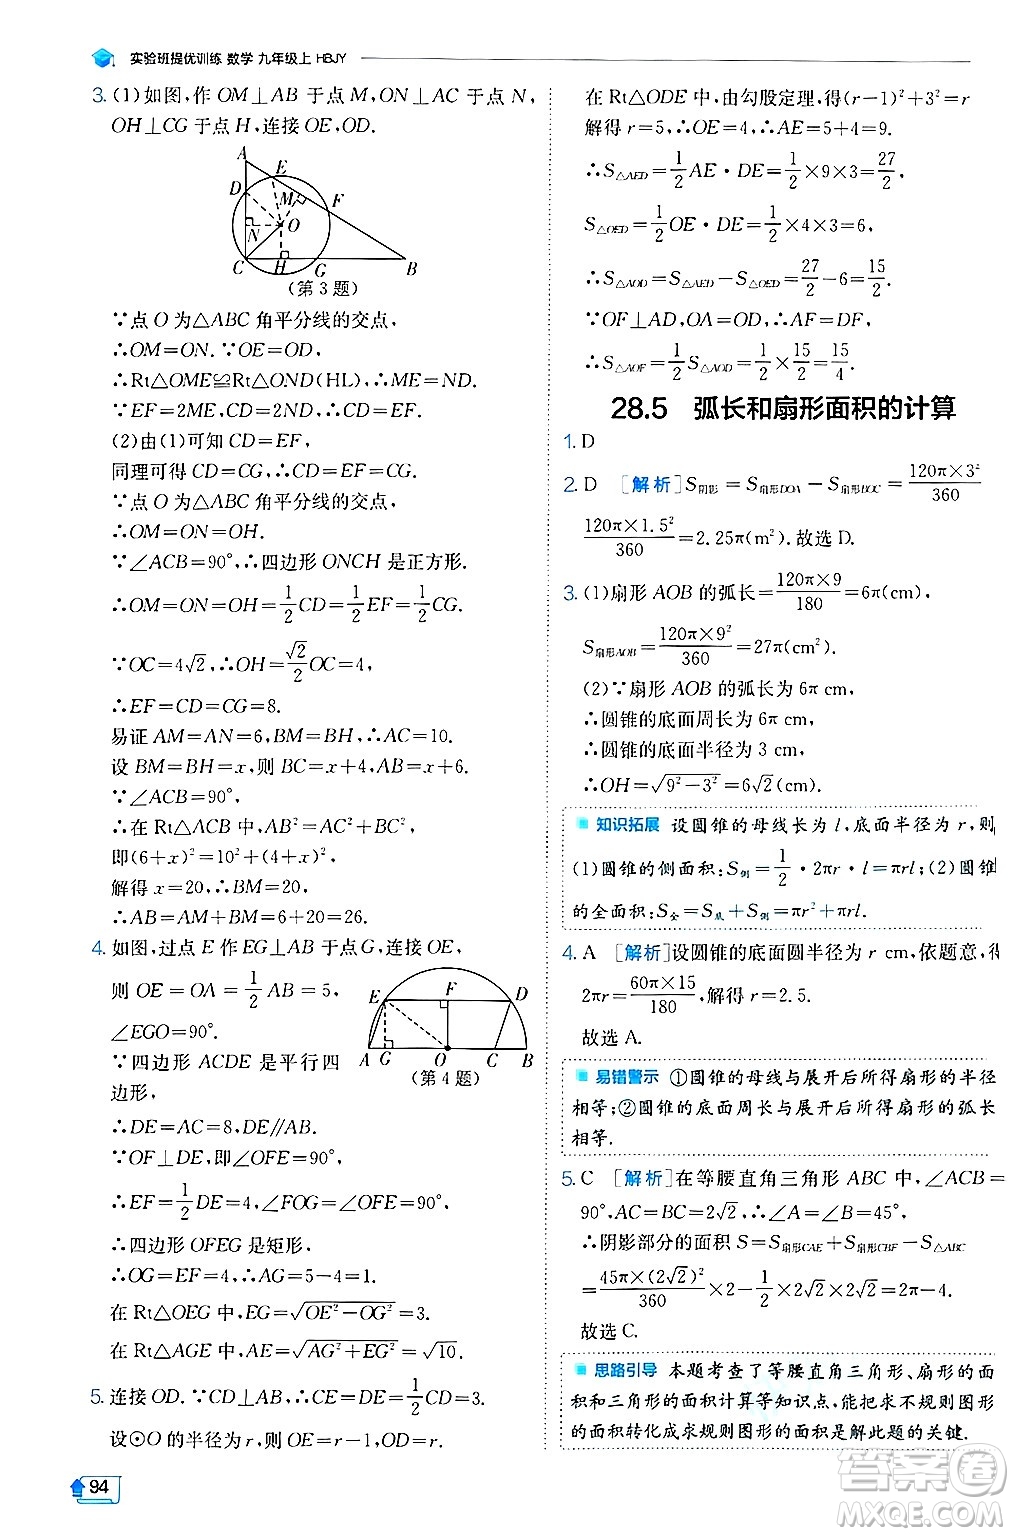 实验班提优训练 数学 九年级上 HBJY
3. (1)如图,作 OM⊥AB 于点 M,ON⊥AC 于点 N,
OH⊥CG 于点 H,连接 OE,OD.
A
E
D
M
F
N
O
C
H
G
B
(第 3 题)
∵点 O 为△ABC 角平分线的交点,
∴OM=ON.∵OE=OD,
∴Rt△OME≌Rt△OND(HL),∴ME=ND.
∵EF=2ME,CD=2ND,∴CD=EF.
(2)由(1)可知 CD=EF,
同理可得 CD=CG,∴CD=CG=EF.
∵点 O 为△ABC 角平分线的交点,
∴OM=ON=OH.
∵∠ACB=90°,∴四边形 ONCH 是正方形.
∴OM=ON=OH=1/2CD=1/2EF=1/2CG.
∵OC=4√2,∴OH=√2/2OC=4.
∴EF=CD=CG=8.
易证 AM=AN=6,BM=BH,∴AC=10.
设 BM=BH=x,则 BC=x+4,AB=x+6.
∵∠ACB=90°,
∴在 Rt△ACB 中,AB²=AC²+BC²,
即(6+x)²=10²+(4+x)².
解得 x=20,∴BM=20.
∴AB=AM+BM=6+20=26.
4. 如图,过点 E 作 EG⊥AB 于点 G,连接 OE,
则 OE=OA=1/2AB=5,
∠EGO=90°.
∵四边形 ACDE 是平行四
边形,
E
F
D
A
G
O
C
B
(第 4 题)
∴DE=AC=8,DE∥AB.
∵OF⊥DE,即∠OFE=90°,
∴EF=1/2DE=4,∠FOG=∠OFE=90°.
∴四边形 OFEG 是矩形.
∴OG=EF=4.∴AG=5-4=1.
在 Rt△OEG 中,EG=√(OE²-OG²)=3.
在 Rt△AGE 中,AE=√(AG²+EG²)=√10.
5. 连接 OD.∵CD⊥AB,∴CE=DE=1/2CD=3.
设⊙O 的半径为 r,则 OE=r-1,OD=r.
94
在 Rt△ODE 中,由勾股定理,得(r-1)²+3²=r
解得 r=5,∴OE=4,∴AE=5+4=9.
∴S△AED=1/2AE·DE=1/2×9×3=27/2,
S△OED=1/2OE·DE=1/2×4×3=6.
∴S△AOD=S△AED-S△OED=27/2-6=15/2.
∵OF⊥AD,OA=OD,∴AF=DF,
∴S△AOF=1/2S△AOD=1/2×15/2=15/4.
28.5 弧长和扇形面积的计算
1. D
2. D [解析]S阴影=S扇形DOA-S扇形BOC=120π×3²/360
120π×1.5²/360=2.25π(m²).故选 D.
3. (1)扇形 AOB 的弧长=120π×9/180=6π(cm),
S扇形AOB=120π×9²/360=27π(cm²).
(2)∵扇形 AOB 的弧长为 6π cm,
∴圆锥的底面周长为 6π cm,
∴圆锥的底面半径为 3 cm,
∴OH=√(9²-3²)=6√2(cm).
知识拓展 设圆锥的母线长为 l,底面半径为 r,则
(1)圆锥的侧面积:S侧=1/2·2πr·l=πrl;(2)圆锥
的全面积:S全=S底+S侧=πr²+πrl.
4. A [解析]设圆锥的底面圆半径为 r cm,依题意,得
2πr=60π×15/180,解得 r=2.5.
故选 A.
易错警示 ①圆锥的母线与展开后所得扇形的半径
相等;②圆锥的底面周长与展开后所得扇形的弧长
相等.
5. C [解析]在等腰直角三角形 ABC 中,∠ACB=
90°,AC=BC=2√2,∴∠A=∠B=45°,
∴阴影部分的面积 S=S扇形CAE+S扇形CBF-S△ABC
=45π×(2√2)²/360×2-1/2×2√2×2√2=2π-4.
故选 C.
思路引导 本题考查了等腰直角三角形、扇形的面
积和三角形的面积计算等知识点,能把求不规则图形
的面积转化成求规则图形的面积是解此题的关键.
答案圈
MXQE.COM